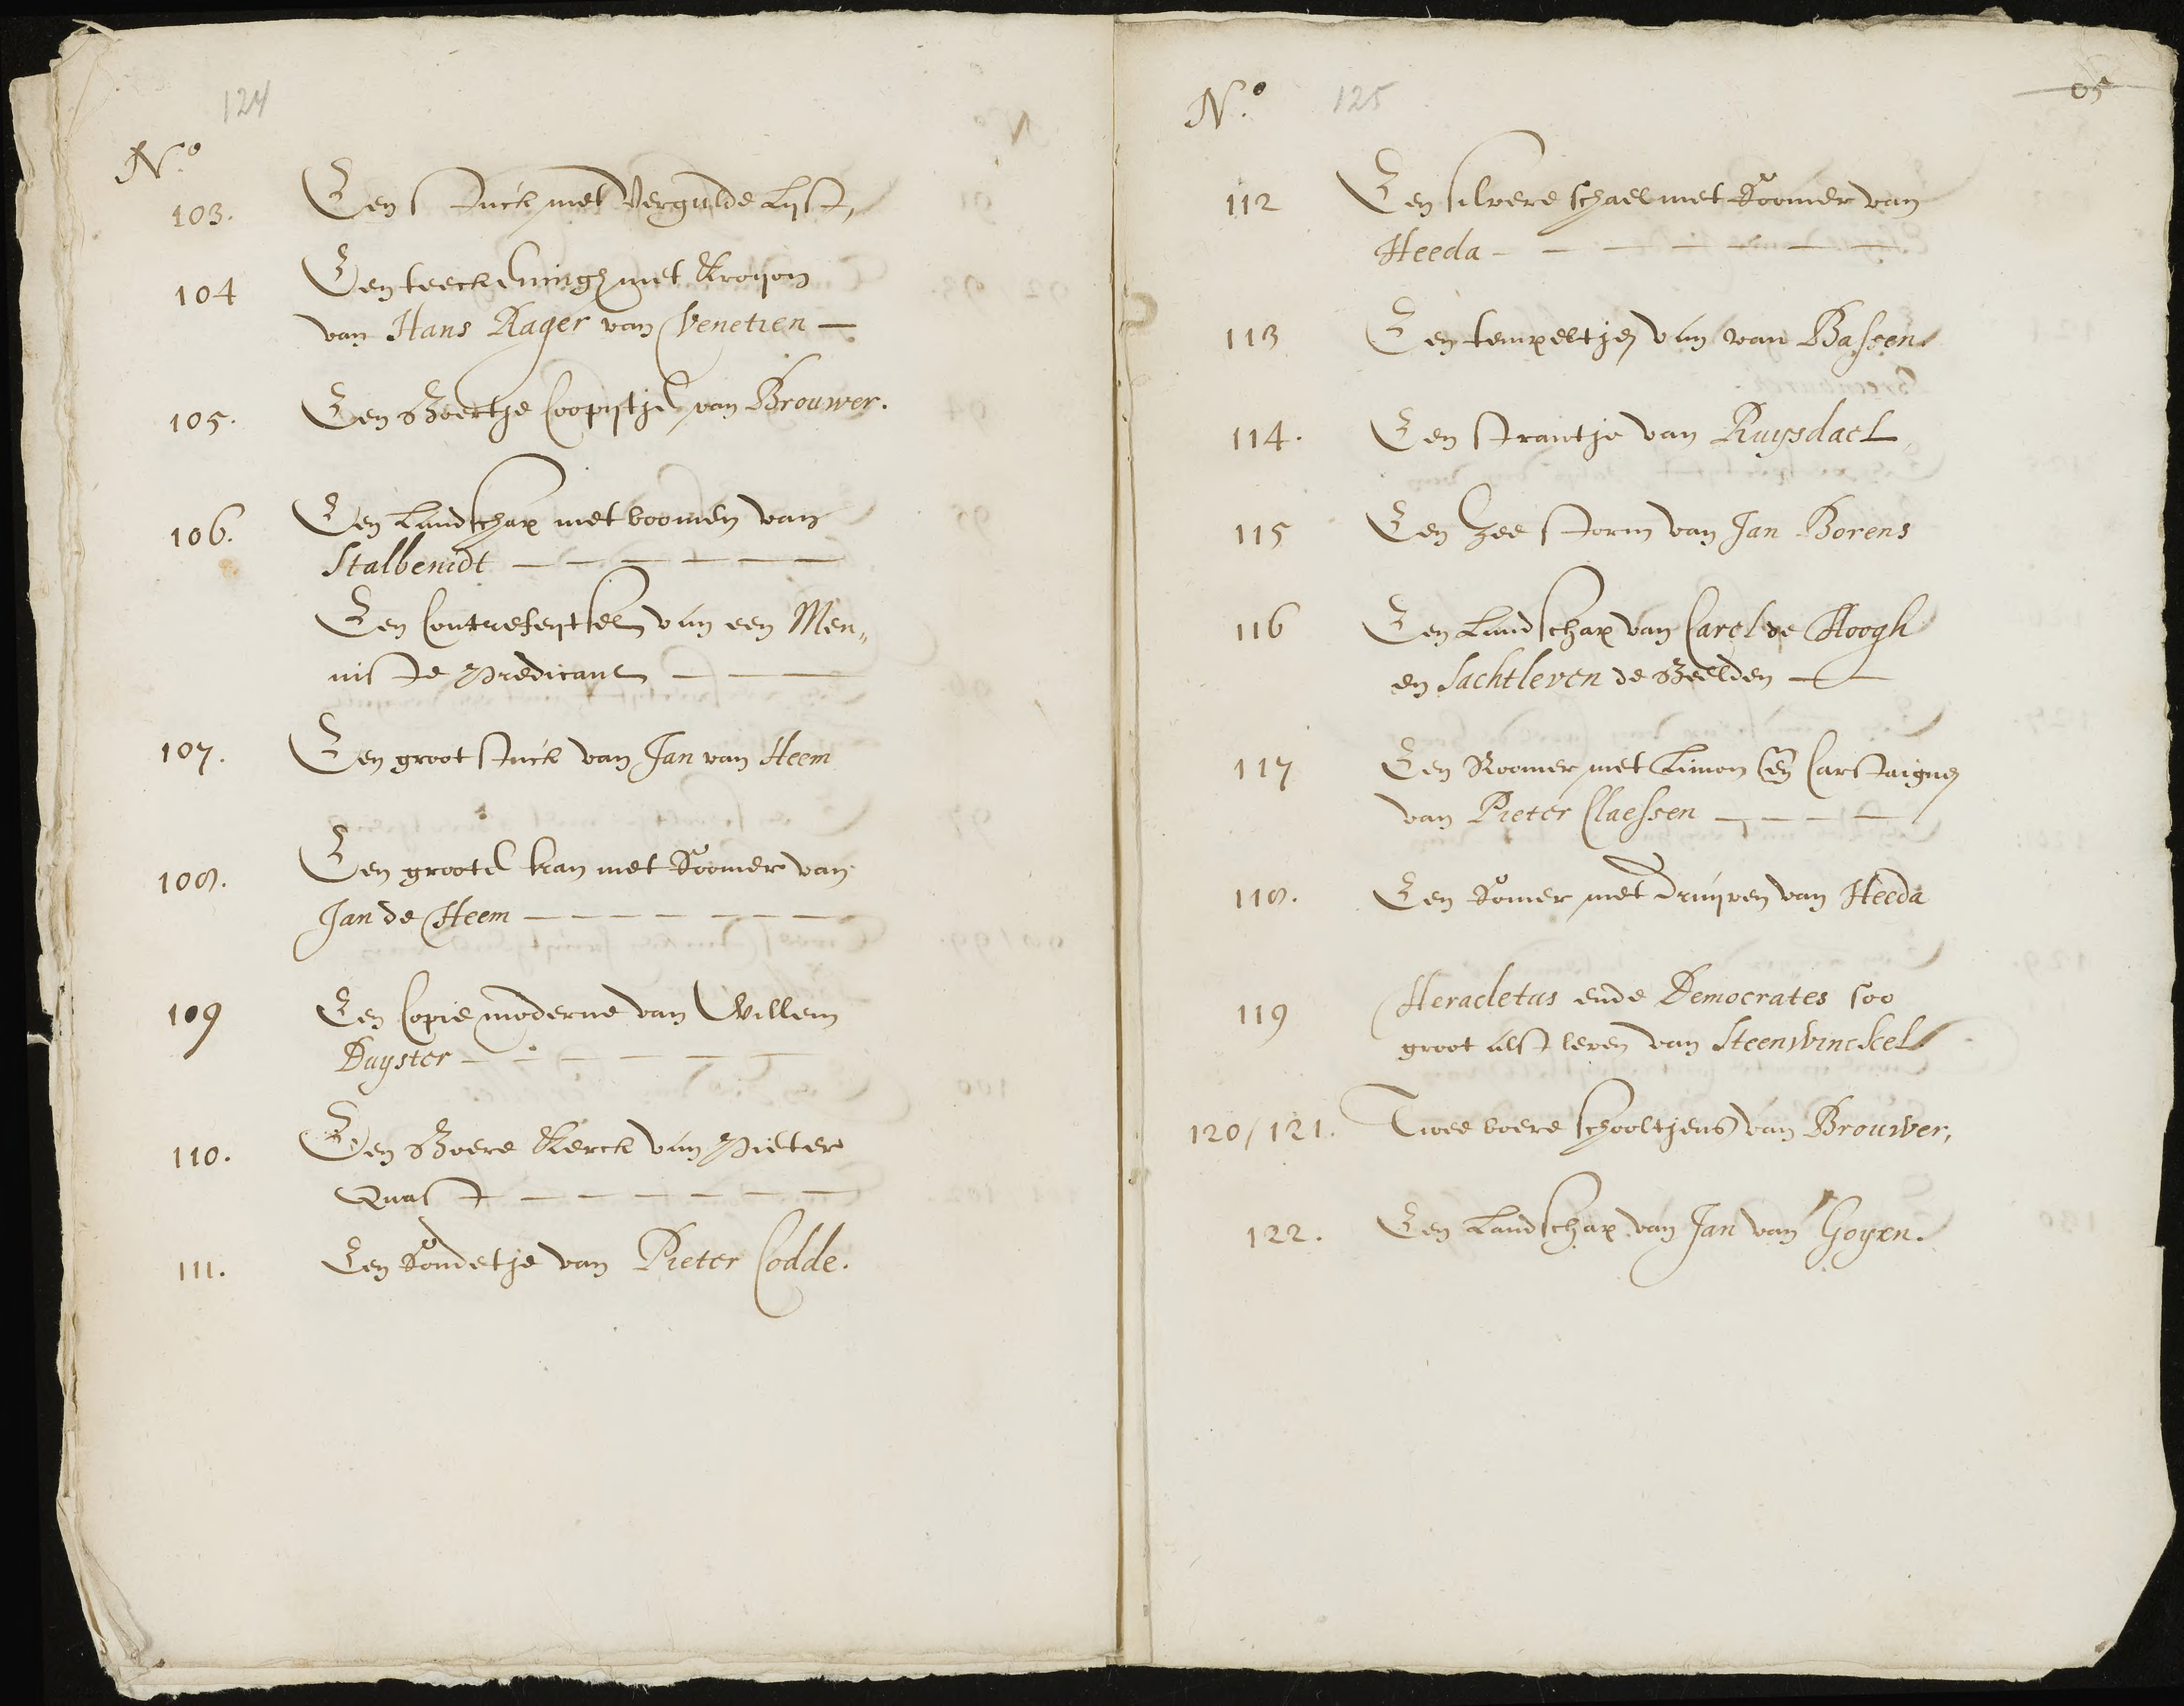 124
N.o
103. Een stuck met Vergulde Lyst,
104 Een teeckeningh met Kroyon
van Hans Rager van Venetien —
105. Een Boertje Coopytje van Brouwer.
106. Een Landschap met boomen van
Stalbemdt — — — — — —
Een Contrefeytsel van een Men„
niste Predicant — — —
107. Een groot stuck van Jan van Heem
108. Een groote kan met Roomer van
Jan de Heem — — — — — — —
109 Een Copie moderne van Willem
Duyster — — — — — — —
110. Een Boere Kerck van Pieter
Quast — — — — — — —
111. Een Rondetje van Pieter Codde.
N.o 125 05
112 Een silvere schael met Roomer van
Heeda — — — — — — —
113 Een tempeltje van van Bassen
114. Een strantje van Ruysdael
115 Een Zee storm van Jan Borens
116 Een Landschap van Carel de Hoogh
en Sachtleven de Beelden —
117 Een Roomer met Limon en Carstaigne
van Pieter Claessen — — — —
118. Een Romer met druyven van Heeda
119 Heracletus ende Democrates soo
groot alst leven van Steenwinckel
120/121. Twee boere schooltjens van Brouwer,
122. Een Landschap van Jan van Goyen.